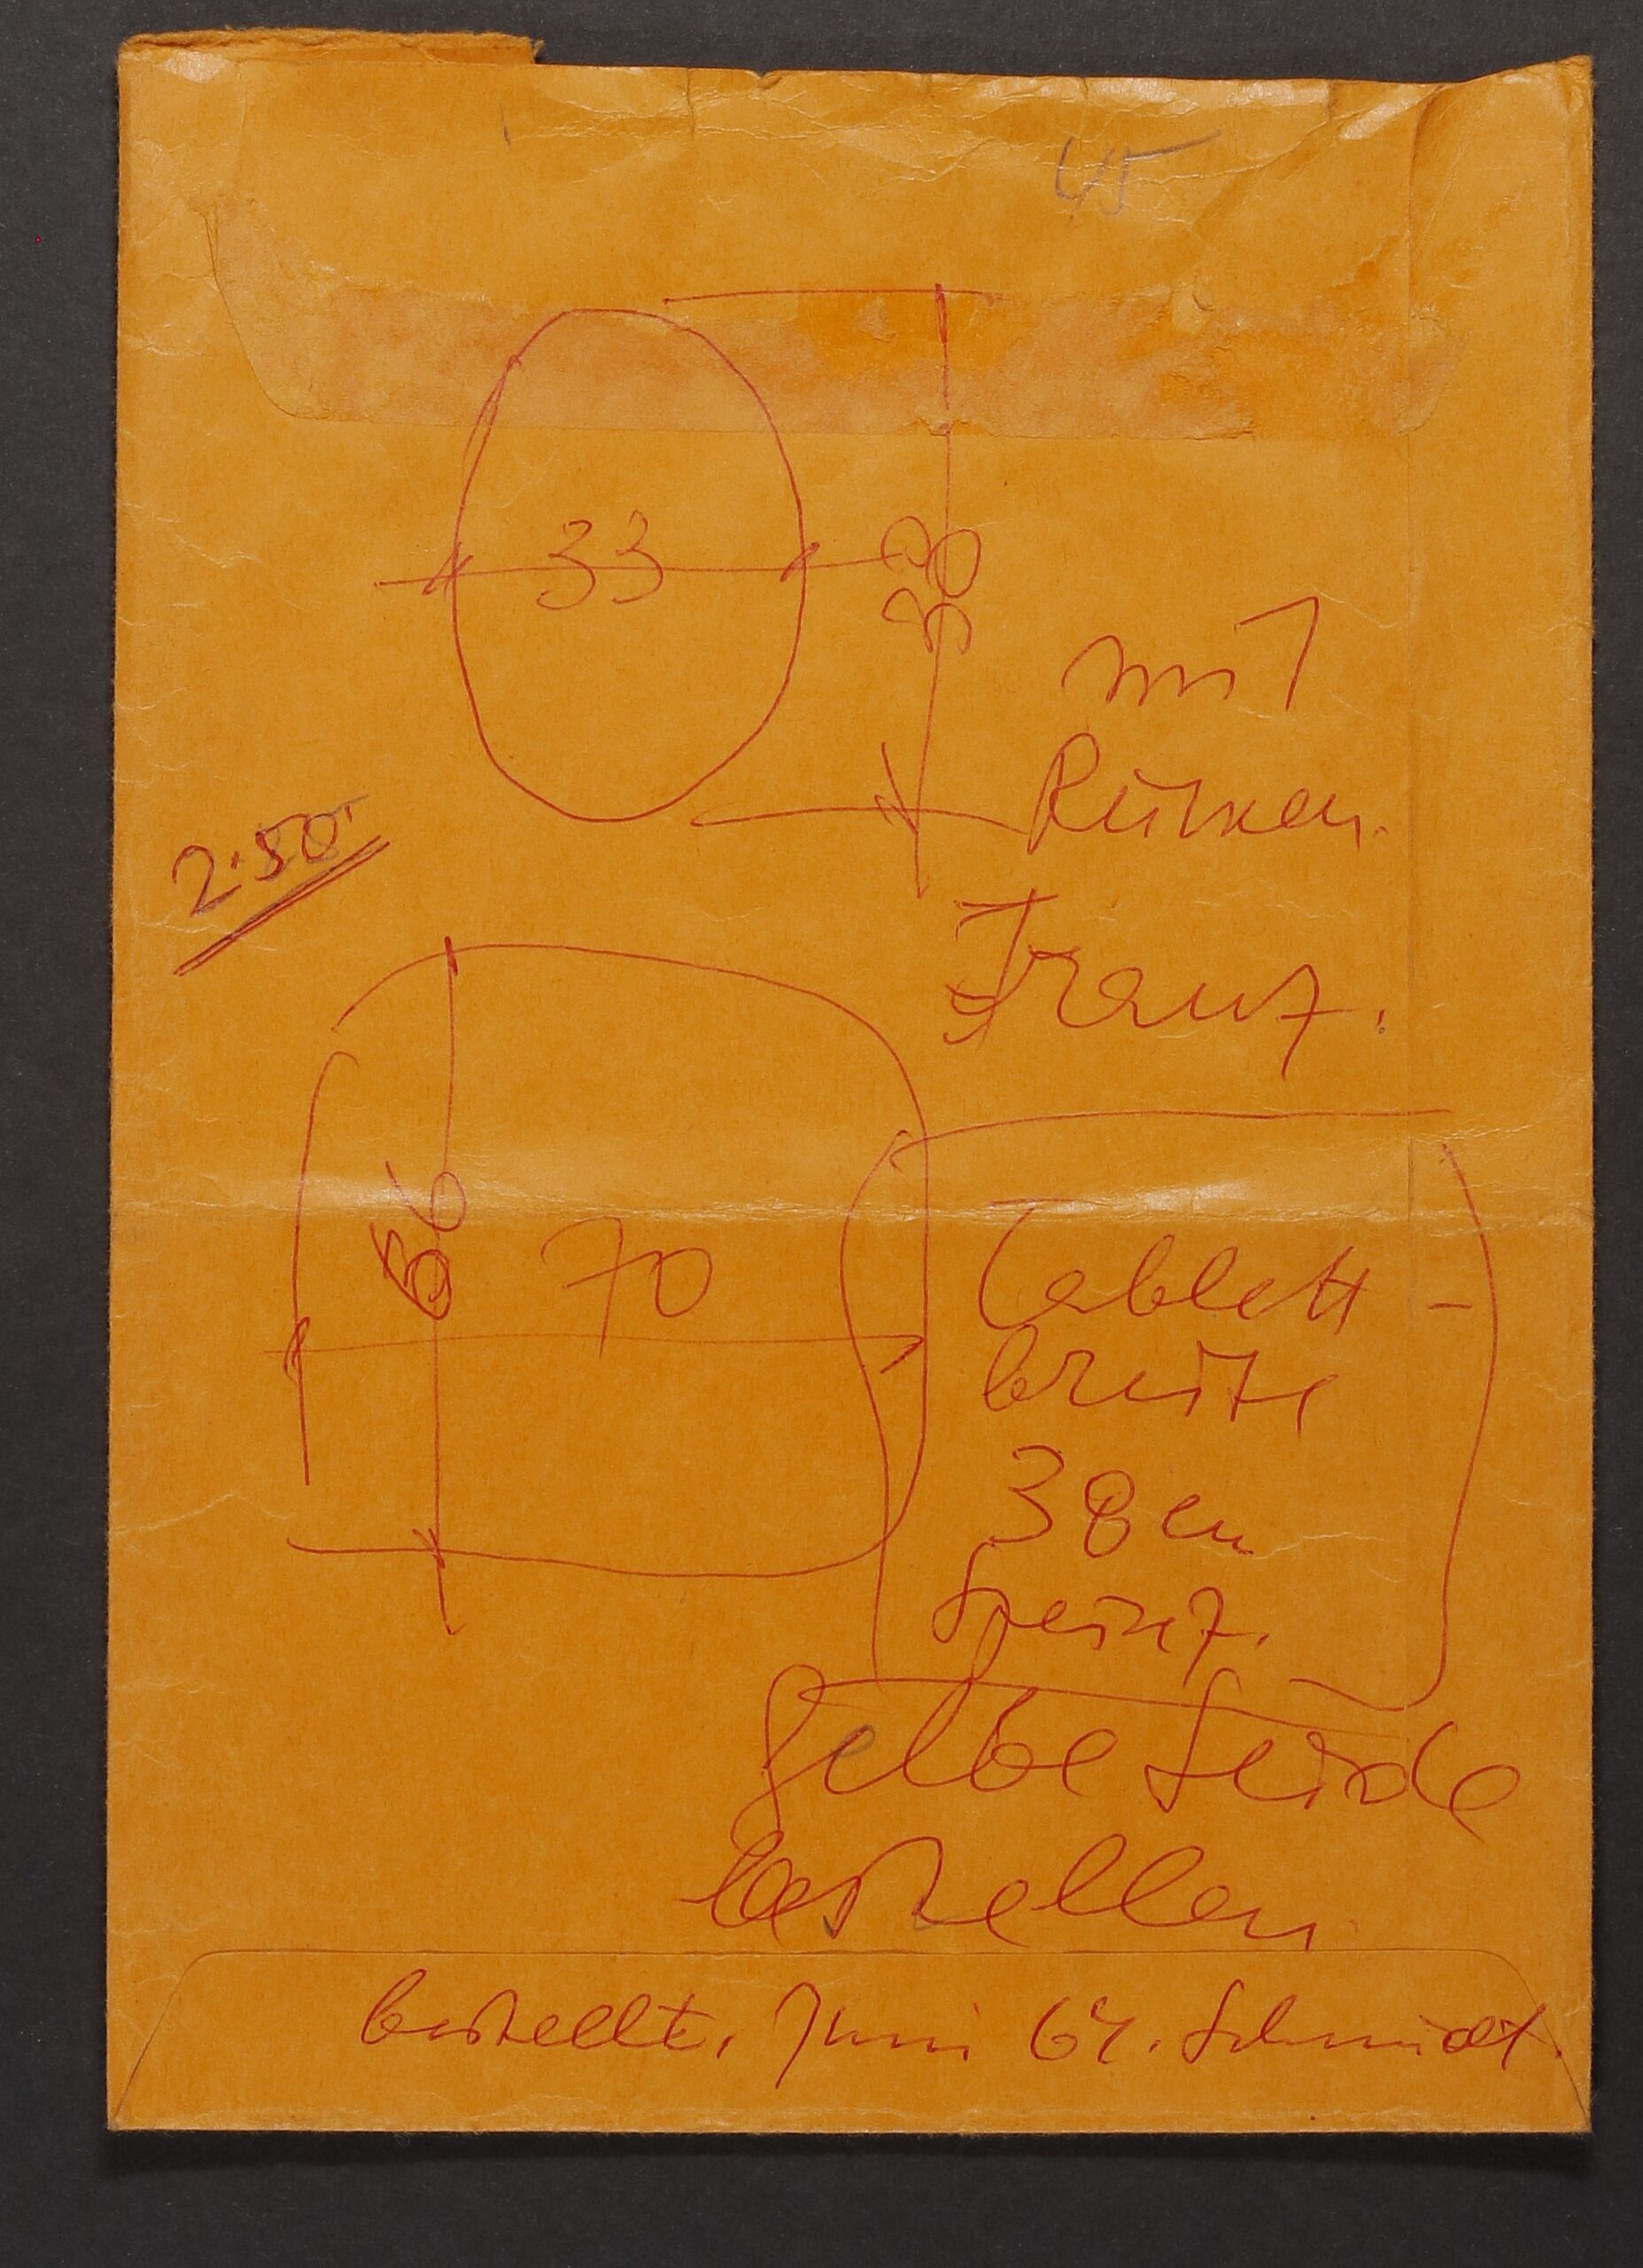 45
33
38
mit
Rücken.
Franz.
2.50.
56
70
Tablett -
breite
38 cm
Speisez.
Gelbe Seide
bestellen
bestellt. Juni 64. Schmidt.